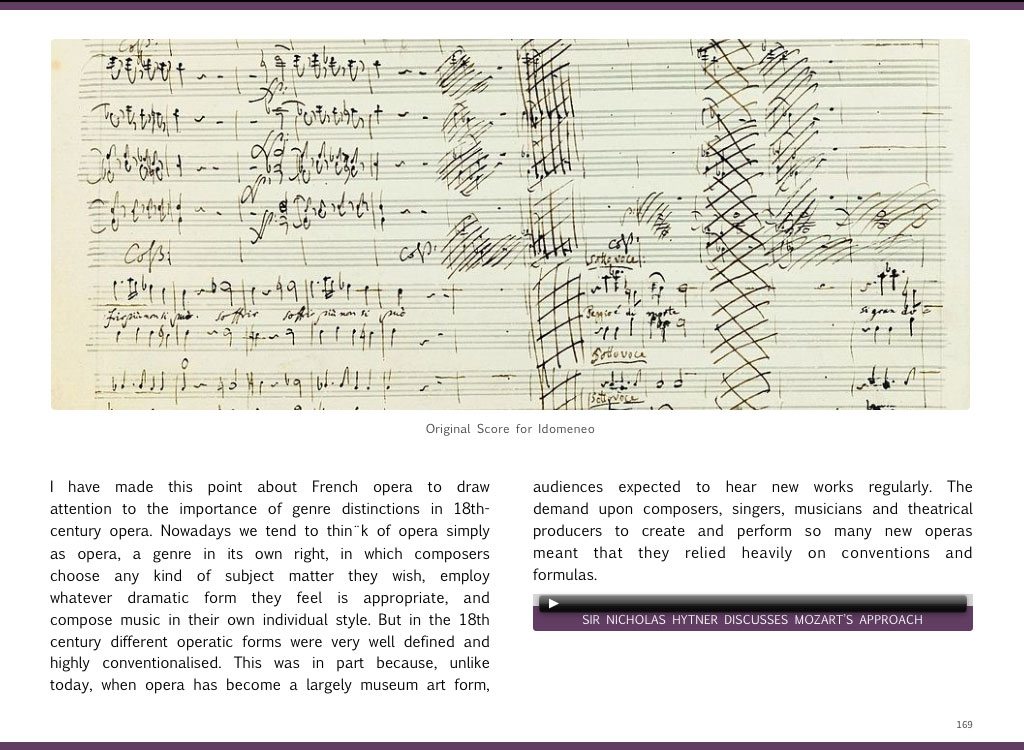 Coll:
Coll:
Coll:
coll:
sottovoce
soffrir
Sottovoce
Sottovoce
Original Score for Idomeneo
I have made this point about French opera to draw
attention to the importance of genre distinctions in 18th-
century opera. Nowadays we tend to thin¨k of opera simply
as opera, a genre in its own right, in which composers
choose any kind of subject matter they wish, employ
whatever dramatic form they feel is appropriate, and
compose music in their own individual style. But in the 18th
century different operatic forms were very well defined and
highly conventionalised. This was in part because, unlike
today, when opera has become a largely museum art form,
audiences expected to hear new works regularly. The
demand upon composers, singers, musicians and theatrical
producers to create and perform so many new operas
meant that they relied heavily on conventions and
formulas.
SIR NICHOLAS HYTNER DISCUSSES MOZART'S APPROACH
169